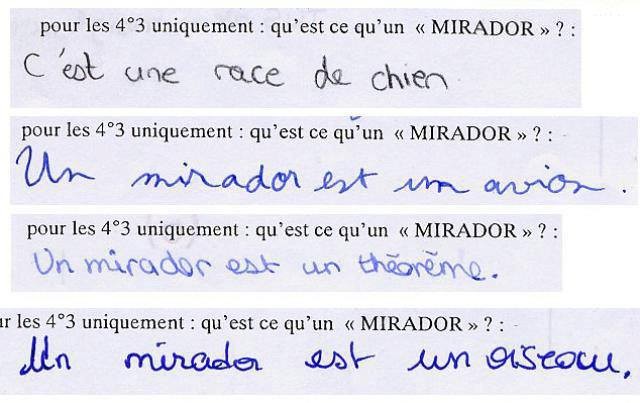 pour les 4°3 uniquement : qu'est ce qu'un « MIRADOR » ? :
C'est une race de chien
pour les 4°3 uniquement : qu'est ce qu'un « MIRADOR » ? :
Un mirador est un avion.
pour les 4°3 uniquement : qu'est ce qu'un « MIRADOR » ? :
Un mirador est un théorême.
ur les 4°3 uniquement : qu'est ce qu'un « MIRADOR » ? :
Un mirador est un oiseau.